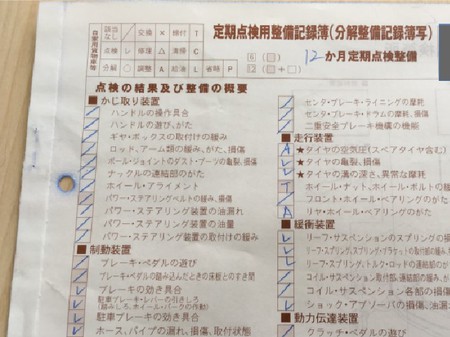 定期点検用整備記録簿(分解整備記録簿写)
該当なし / 交換 × 検付 T
点検 レ 修理 △ 清掃 C
分解 ○ 調整 A 給油 L 省略 P
12か月定期点検整備
点検の結果及び整備の概要
■かじ取り装置
ハンドルの操作具合
ハンドルの遊び、がた
ギヤ・ボックスの取付けの緩み
ロッド、アーム類の緩み、がた、損傷
ボール・ジョイントのダスト・ブーツの亀裂、損傷
ナックルの連結部のがた
ホイール・アライメント
パワー・ステアリングベルトの緩み、損傷
パワー・ステアリング装置の油漏れ
パワー・ステアリング装置の油量
パワー・ステアリング装置の取付けの緩み
■制動装置
ブレーキ・ペダルの遊び
ブレーキ・ペダルの踏み込んだときの床板とのすき間
レ ブレーキの効き具合
駐車ブレーキ・レバーの引きしろ
レ 駐車ブレーキの効き具合
レ ホース、パイプの漏れ、損傷、取付状態
センタ・ブレーキ・ライニングの摩耗
センタ・ブレーキ・ドラムの摩耗、損傷
二重安全ブレーキ機構の機能
■走行装置
A ★タイヤの空気圧(スペアタイヤ含む)
レ ★タイヤの亀裂、損傷
レ ★タイヤの溝の深さ、異常な摩耗
T ホイール・ナット、ホイール・ボルトの緩
フロント・ホイール・ベアリングのが
A リヤ・ホイール・ベアリングのがた
■緩衝装置
リーフ・サスペンションのスプリングの損
コイル・サスペンション各部の損傷
レ ショック・アブソーバの損傷、油漏
■動力伝達装置
クラッチ・ペダルの遊び